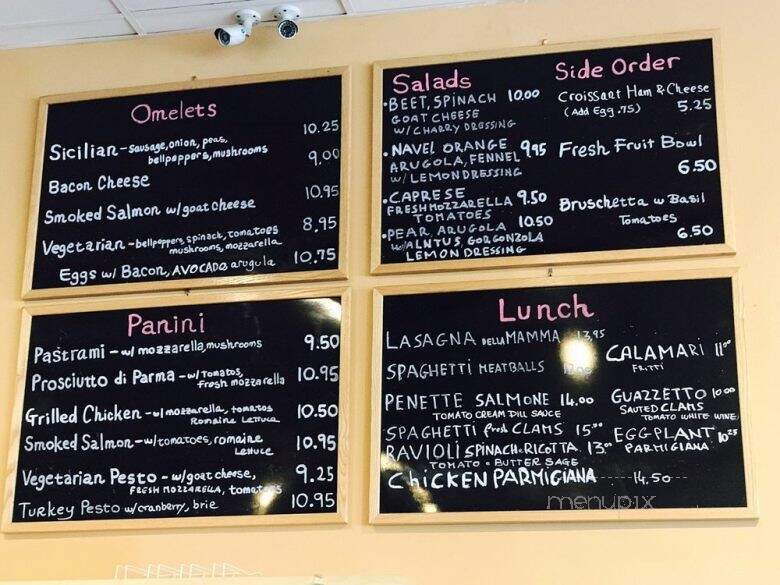 Omelets
Sicilian - sausage, onion, peas, 10.25
bellpeppers, mushrooms
Bacon Cheese 9.00
Smoked Salmon w/goat cheese 10.95
Vegetarian - bellpeppers, spinach, tomatoes 8.95
mushrooms, mozzarella
Eggs w/ Bacon, AVOCADO arugula 10.75
Salads
BEET, SPINACH 10.00
GOAT CHEESE
W/ CHARRY DRESSING
NAVEL ORANGE 9.95
ARUGOLA, FENNEL
W/ LEMON DRESSING
CAPRESE 9.50
FRESH MOZZARELLA
TOMATOES
PEAR, ARUGOLA 10.50
W/ALNTUS, GORGONZOLA
LEMON DRESSING
Side Order
Croissant Ham & Cheese
(Add Egg .75) 5.25
Fresh Fruit Bowl
6.50
Bruschetta w Basil
Tomatoes
6.50
Panini
Pastrami - w/ mozzarella, mushrooms 9.50
Prosciutto di Parma - w/ tomatos, 10.95
fresh mozzarella
Grilled Chicken - w/ mozzarella, tomatos 10.50
Romaine Lettuce
Smoked Salmon - w/tomatoes, romaine 10.95
Lettuce
Vegetarian Pesto - w/goat cheese, 9.25
FRESH MOZZARELLA, tomatos
Turkey Pesto w/cranberry, brie 10.95
Lunch
LASAGNA DELLA MAMMA 13,95
SPAGHETTI MEATBALLS
PENETTE SALMONE 14.00
TOMATO CREAM DILL SAUCE
SPAGHETTI fresh CLAMS 15.00
RAVIOLI SPINACH & RICOTTA 13.00
TOMATO - BUTTER SAGE
CHICKEN PARMIGIANA 14.50
CALAMARI 11.00
FRITTI
GUAZZETTO 10.00
SAUTED CLAMS
TOMATO WHITE WINE
EGGPLANT 10.25
PARMIGIANA
menupix